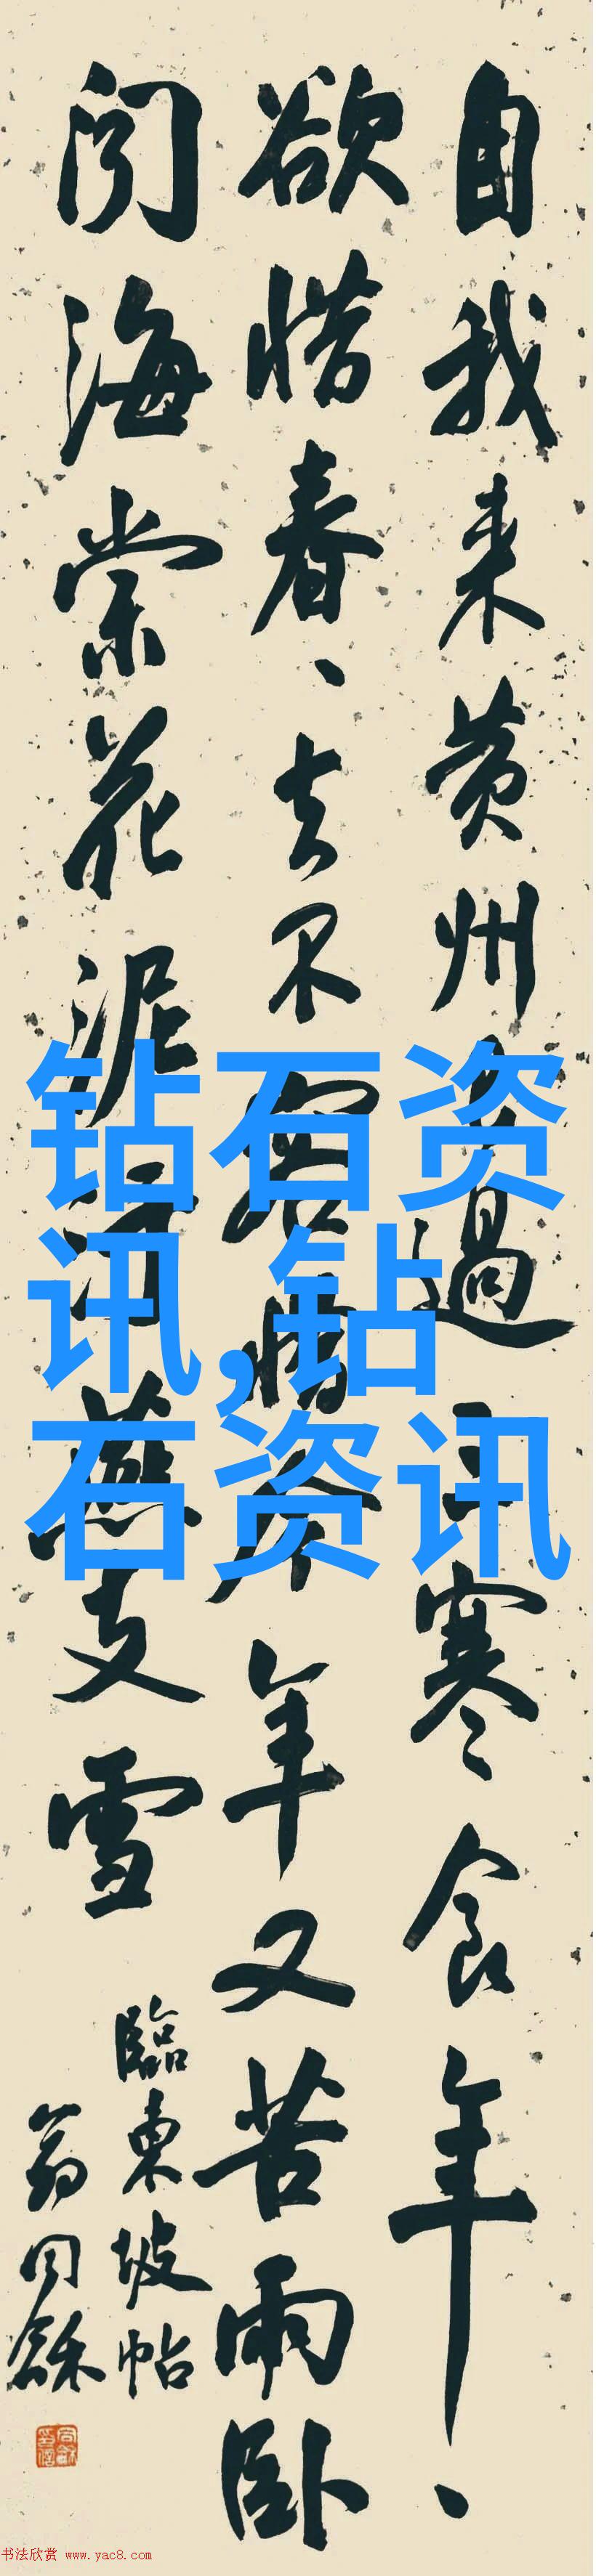 自我来黄州已過三寒食年、
欲惜春、去不容惜今年又苦雨卧
闻海棠花泥污燕支雪
臨東坡帖
翁同龢
钻石资
讯,钻
石资讯
书法欣赏 www.yac8.com